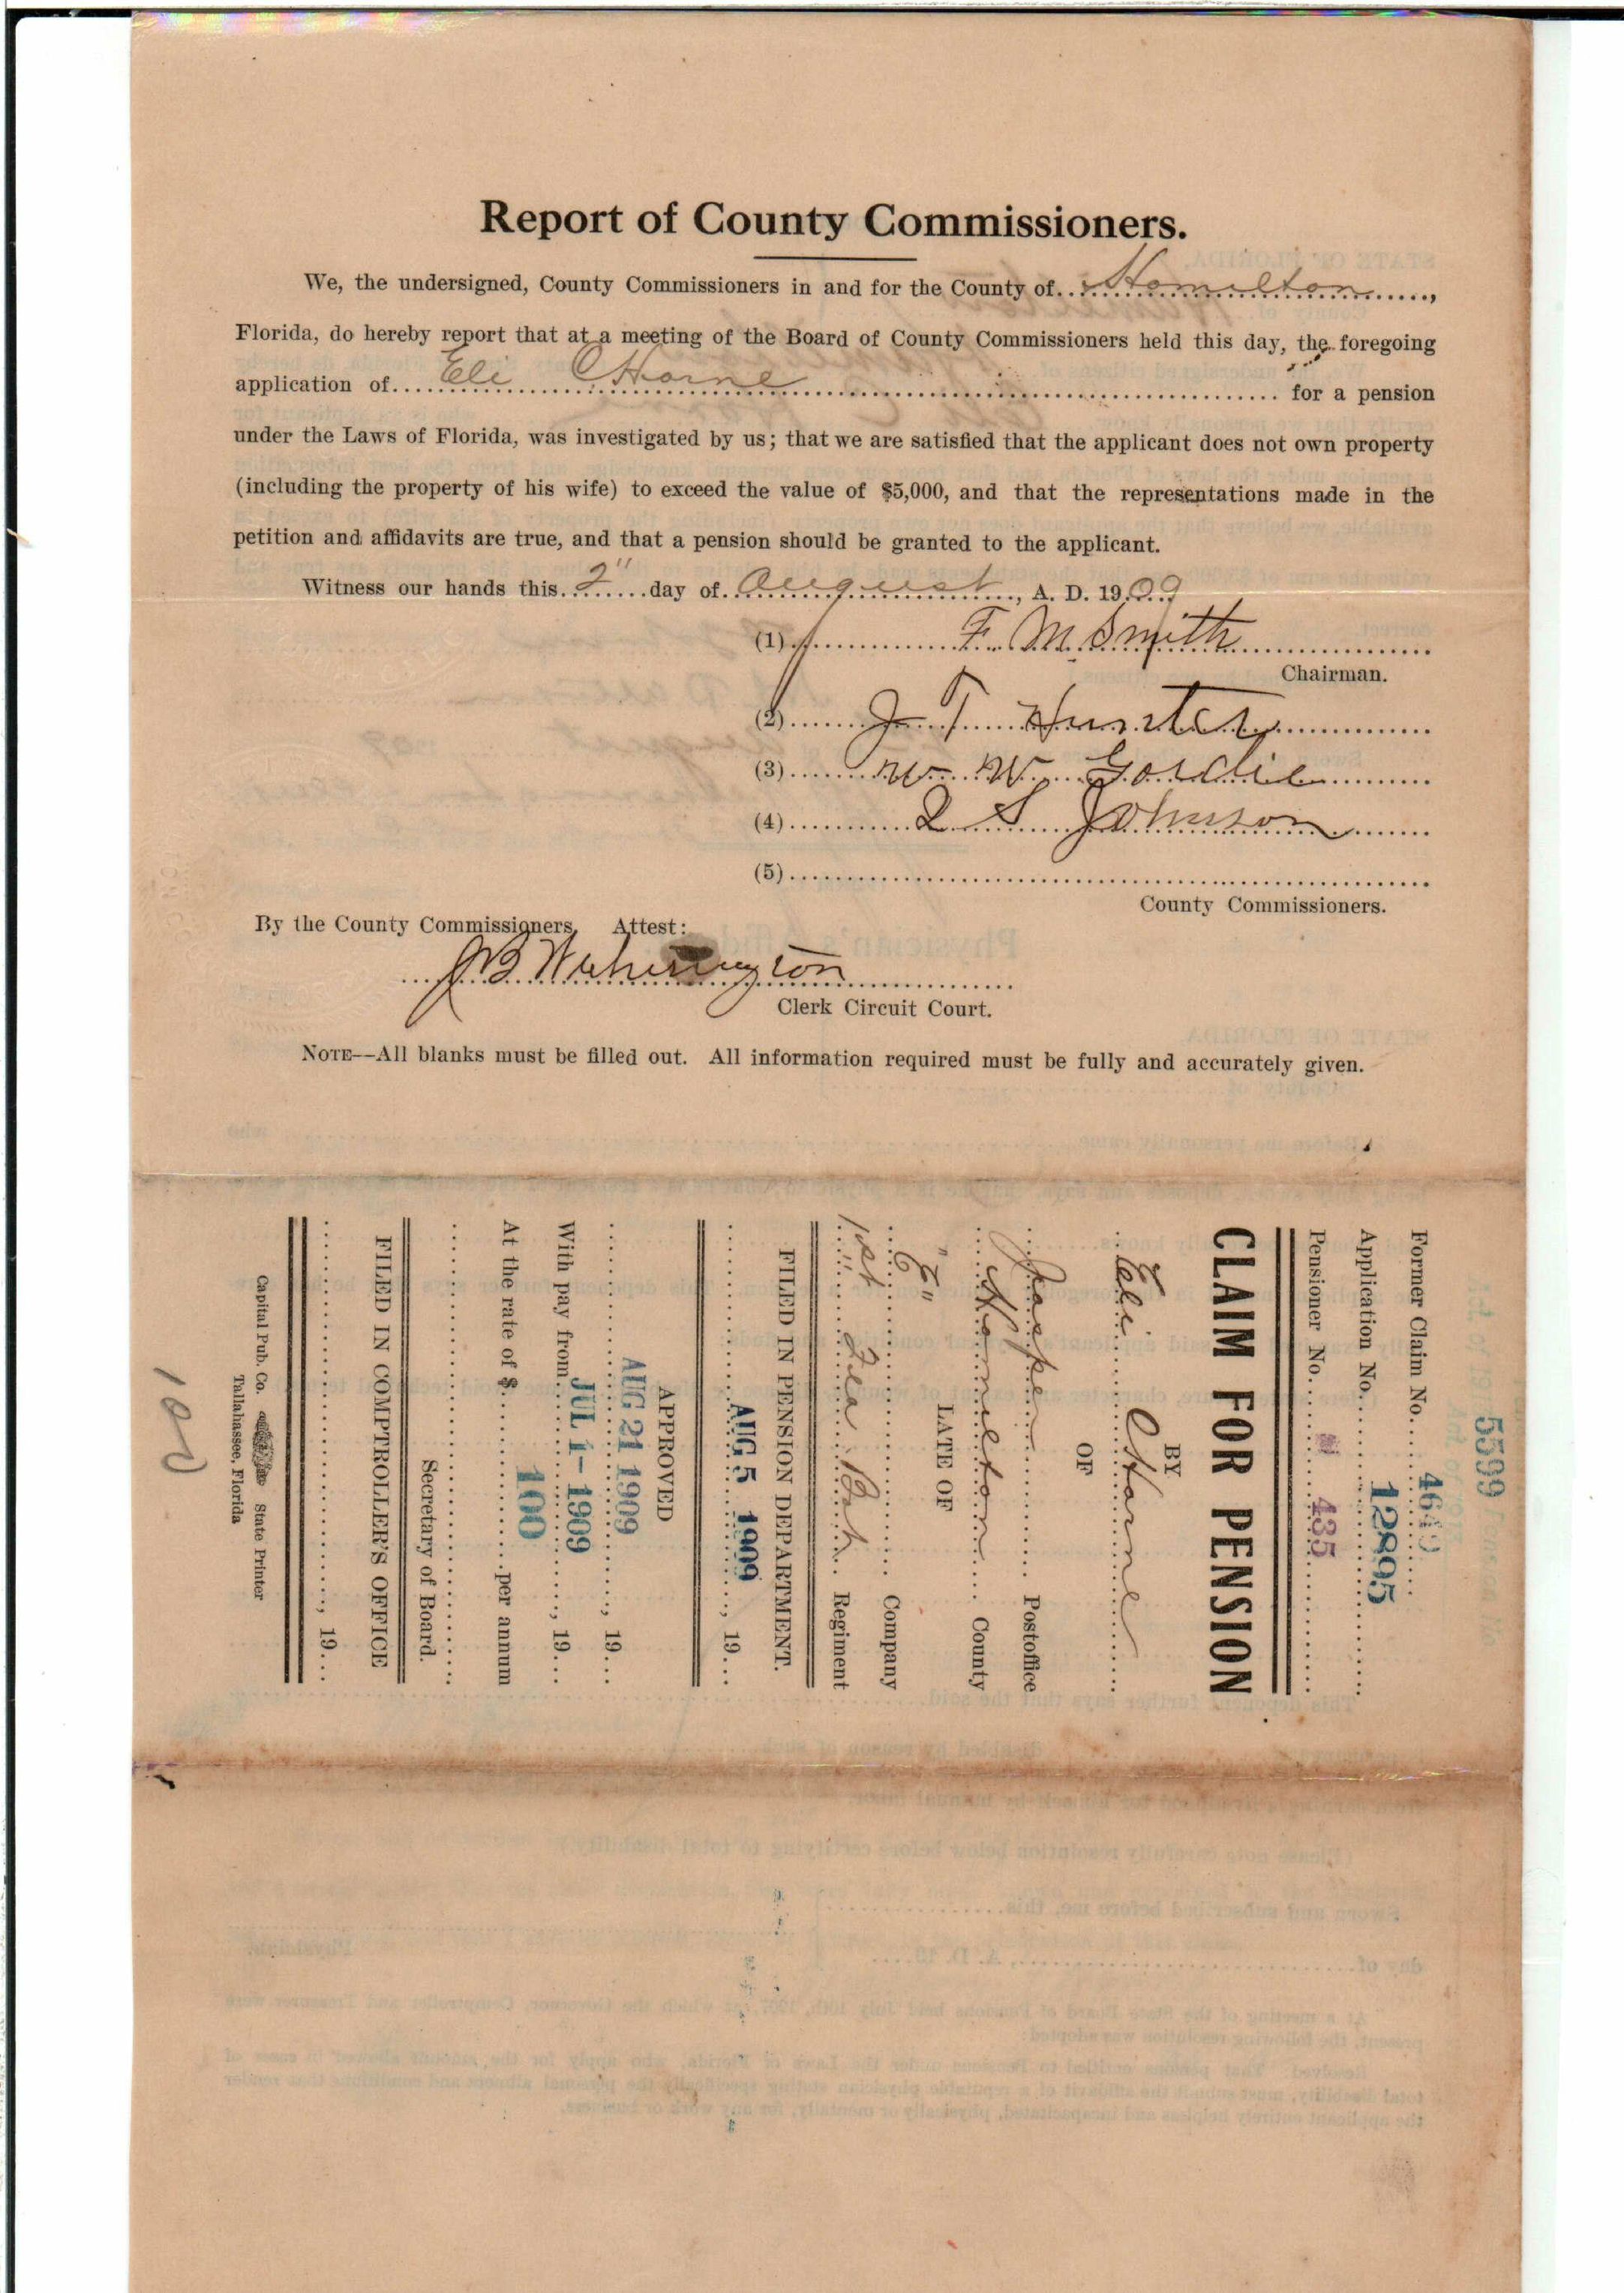 Report of County Commissioners.
We, the undersigned, County Commissioners in and for the County of Hamilton,
Florida, do hereby report that at a meeting of the Board of County Commissioners held this day, the foregoing
application of Eli C Horne for a pension
under the Laws of Florida, was investigated by us; that we are satisfied that the applicant does not own property
(including the property of his wife) to exceed the value of $5,000, and that the representations made in the
petition and affidavits are true, and that a pension should be granted to the applicant.
Witness our hands this 2" day of August, A. D. 1909
(1) F. M. Smith
Chairman.
(2) J T Hunter
(3) W W
(4) S Johnson
(5)
County Commissioners.
By the County Commissioners, Attest:
J B
Clerk Circuit Court.
NOTE—All blanks must be filled out. All information required must be fully and accurately given.
5599
Former Claim No. 4640
Application No. 12895
Pensioner No. 435
CLAIM FOR PENSION
BY
Eli C Horne
OF
Jasper Postoffice
Hamilton County
LATE OF
"E" Company
1st Fla Bat. Regiment
FILED IN PENSION DEPARTMENT.
AUG 5 1909, 19
APPROVED
AUG 21 1909, 19
With pay from JUL 1 - 1909, 19
At the rate of $ 100 per annum
Secretary of Board.
FILED IN COMPTROLLER'S OFFICE
, 19
Capital Pub. Co. State Printer
Tallahassee, Florida